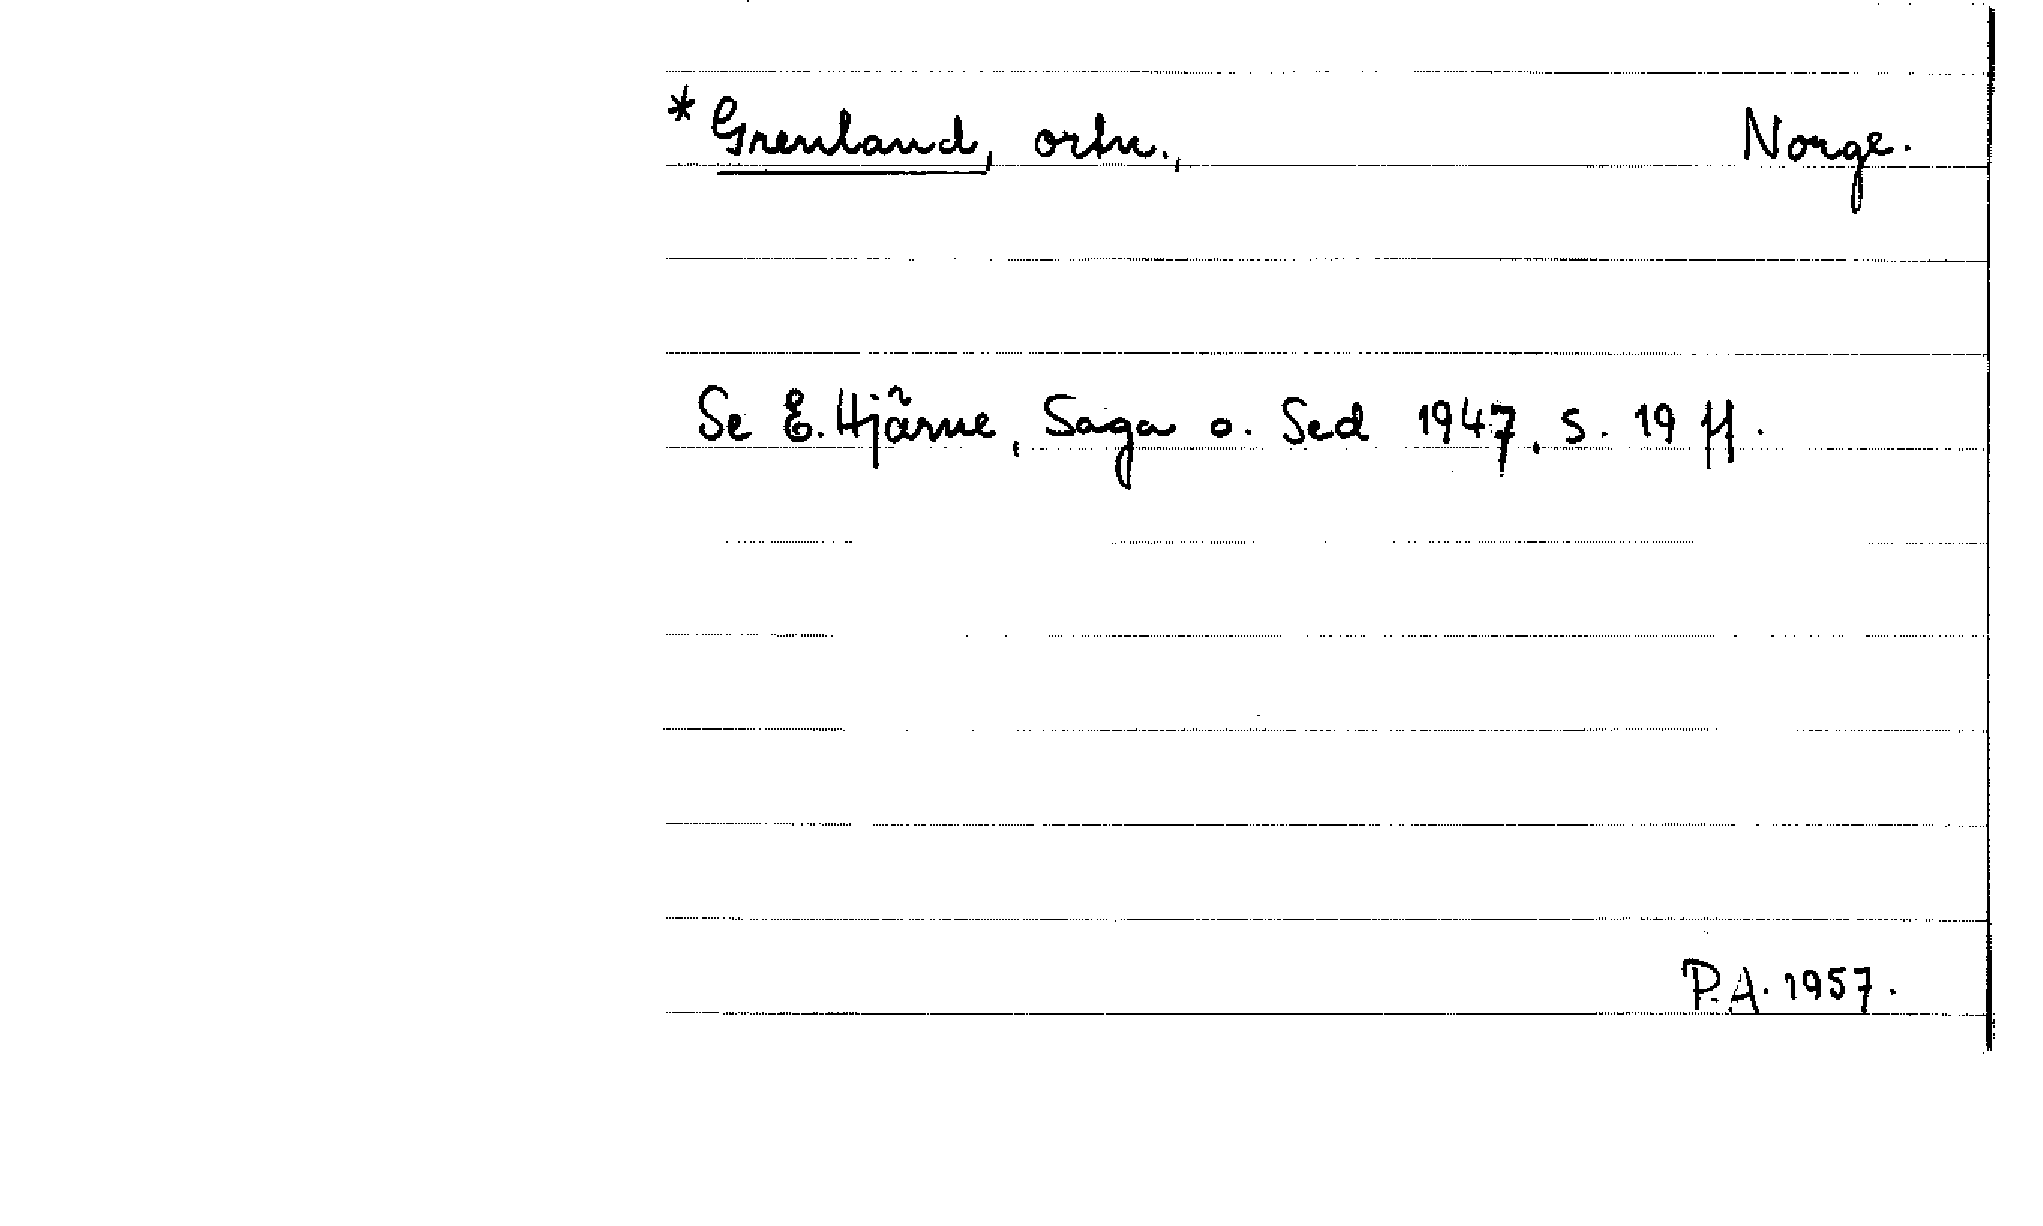 *Grenland, ortn., Norge.
Se E. Hjärne, Saga o. Sed 1947, s. 19 ff.
P.A. 1957.